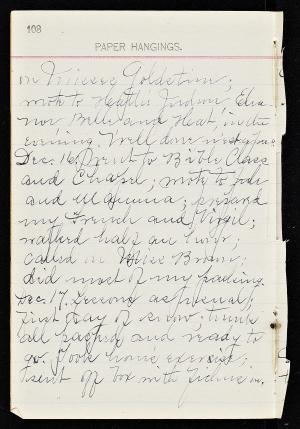 108
PAPER HANGINGS.
on Miss Goldstein;
wrote to Hattie Elea
nor Belle and Neat, in the
evening. Well done
Dec. 16. Went to Bible Class
and Chapel; wrote to
and Mamma; prepared
my French and Virgil;
walked half an hour;
called on Miss Brown;
did most of my packing.
Dec. 17. Lessons as usual;
first day of snow; trunk
all packed and ready to
go. Took hour's exercise;
sent off box with in.